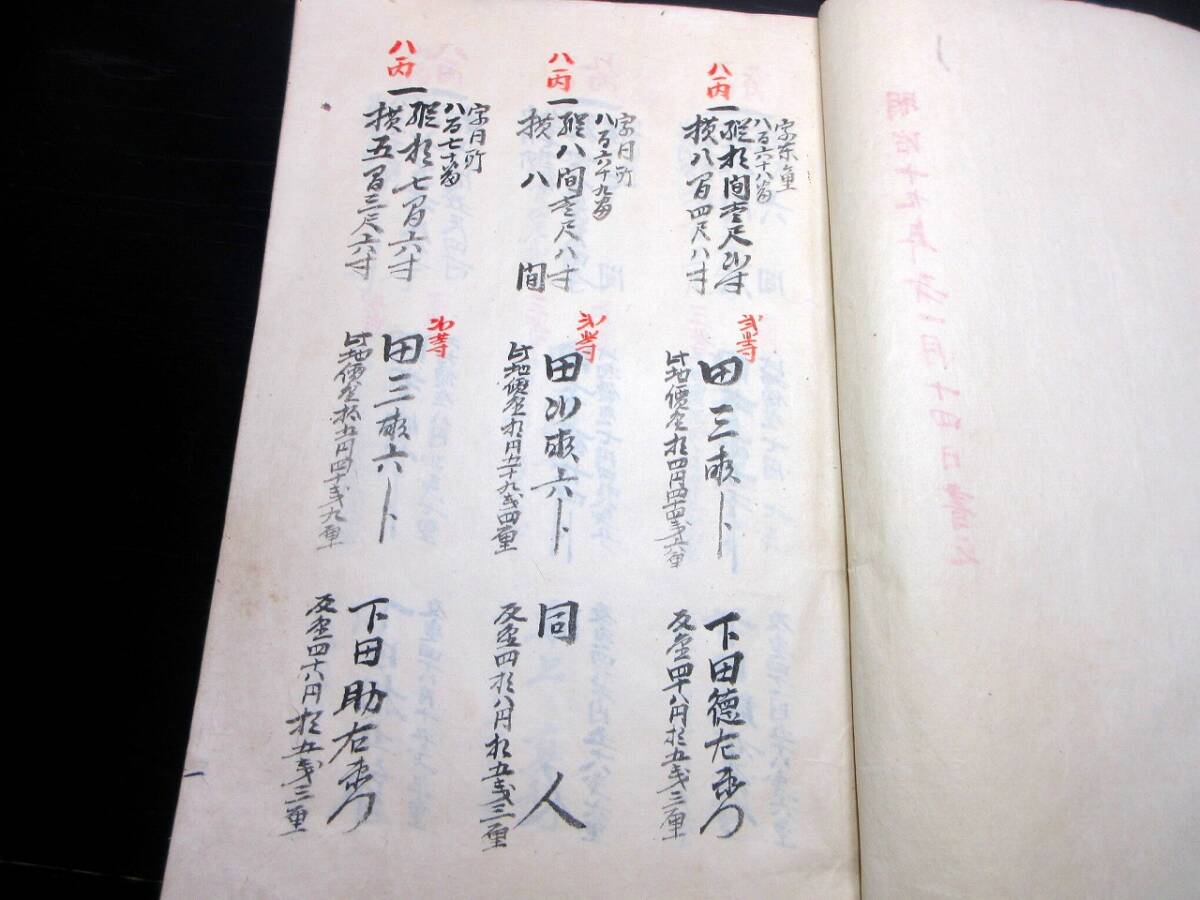 明治十九年第一月十四日書之
八丙
八百六十八番
一縦拾間壱尺弐寸
横八間四尺八寸
弐等
田三畝卜
此地価金拾四円四十四戋六厘
下田徳左衛門
反金四十八円拾五戋三厘
八丙
字同所
八百六十九番
一縦八間壱尺八寸
横八間
弐等
田弐畝六卜
此地価金拾円五十九戋四厘
同人
反金四拾八円拾五戋三厘
八丙
字同所
八百七十番
一縦拾七間六寸
横五間三尺六寸
弐等
田三畝六卜
此地価金拾五円四十戋九厘
下田助右衛門
反金四十八円拾五戋三厘